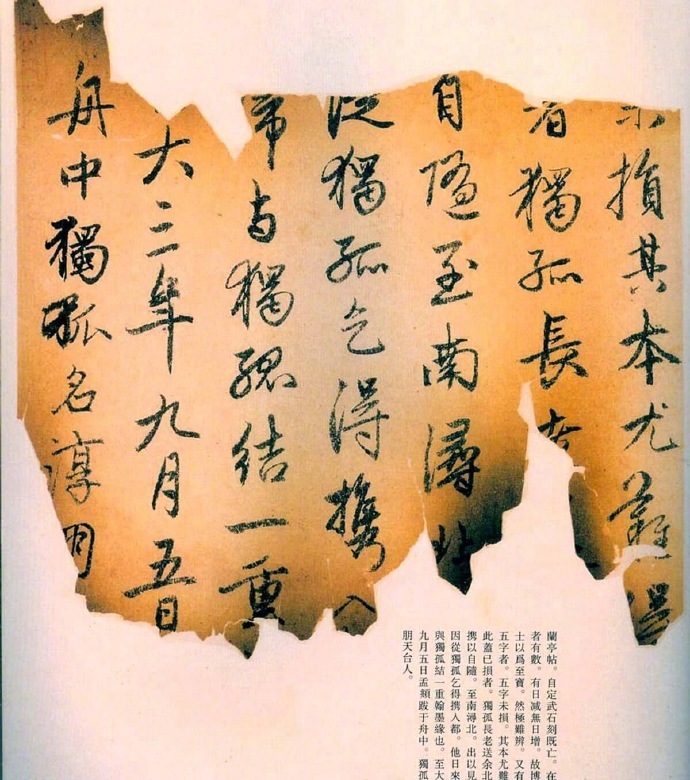 損其本尤難得
者獨孤長
自隨至南潯北
從獨孤乞得攜入
与獨孤結一重
大三年九月五日
舟中獨孤名淳朋
蘭亭帖。自定武石刻既亡。在
者有數。有日減無日增。故博
士以爲至寶。然極難辨。又有
五字者。五字未損。其本尤難
此蓋已損者。獨孤長老送余北
携以自隨。至南潯北。出以見
因從獨孤乞得携入都。他日來
與獨孤結一重翰墨緣也。至大
九月五日孟頫跋于舟中。獨孤
朋天台人。